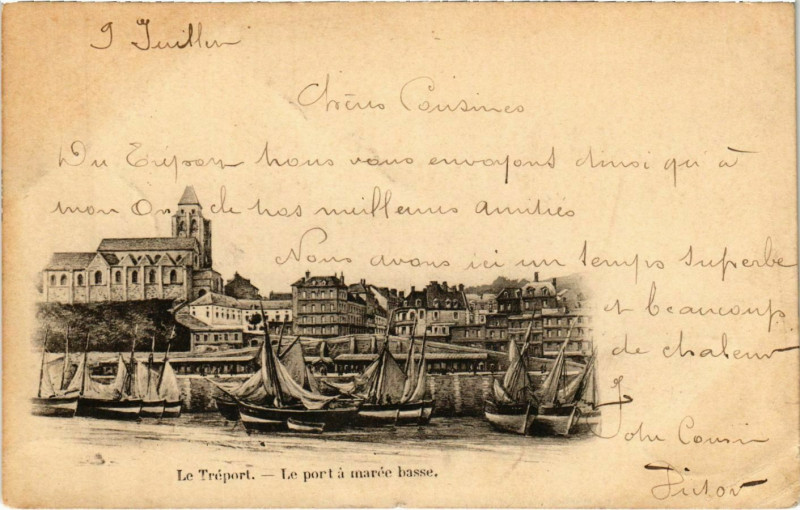 9 Juillet
Chères Cousines
Du Tréport nous vous envoyons ainsi qu'à
mon Oncle nos meilleures amitiés
Nous avons ici un temps superbe
et beaucoup
de chaleur
Votre Cousin
Victor
Le Tréport. — Le port à marée basse.